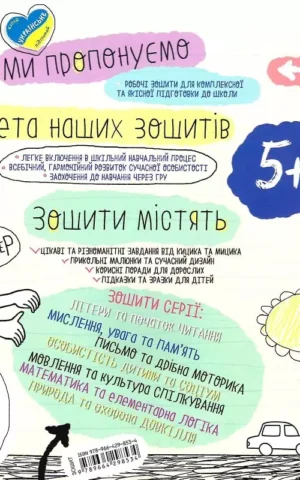 УКРАЇНСЬКЕ
МИ ПРОПОНУЄМО
РОБОЧІ ЗОШИТИ ДЛЯ КОМПЛЕКСНОЇ
ТА ЯКІСНОЇ ПІДГОТОВКИ ДО ШКОЛИ
ЕТА НАШИХ ЗОШИТІВ
5+
• ЛЕГКЕ ВКЛЮЧЕННЯ В ШКІЛЬНИЙ НАВЧАЛЬНИЙ ПРОЦЕС
• ВСЕБІЧНИЙ, ГАРМОНІЙНИЙ РОЗВИТОК СУЧАСНОЇ ОСОБИСТОСТІ
• ЗАОХОЧЕННЯ ДО НАВЧАННЯ ЧЕРЕЗ ГРУ
ЗОШИТИ МІСТЯТЬ
ЕР
ЦІКАВІ ТА РІЗНОМАНІТНІ ЗАВДАННЯ ВІД КИЦИКА ТА МИЦИКА
ПРИКОЛЬНІ МАЛЮНКИ ТА СУЧАСНИЙ ДИЗАЙН
КОРИСНІ ПОРАДИ ДЛЯ ДОРОСЛИХ
ПІДКАЗКИ ТА ЗРАЗКИ ДЛЯ ДІТЕЙ
ЗОШИТИ СЕРІЇ:
ЛІТЕРИ ТА ПОЧАТОК ЧИТАННЯ
МИСЛЕННЯ, УВАГА ТА ПАМ'ЯТЬ
ПИСЬМО ТА ДРІБНА МОТОРИКА
ОСОБИСТІСТЬ ДИТИНИ ТА СОЦІУМ
МОВЛЕННЯ ТА КУЛЬТУРА СПІЛКУВАННЯ
МАТЕМАТИКА ТА ЕЛЕМЕНТАРНА ЛОГІКА
ПРИРОДА ТА ОХОРОНА ДОВКІЛЛЯ
ЗОШИТ
ISBN 978-966-429-853-4
9789664298534